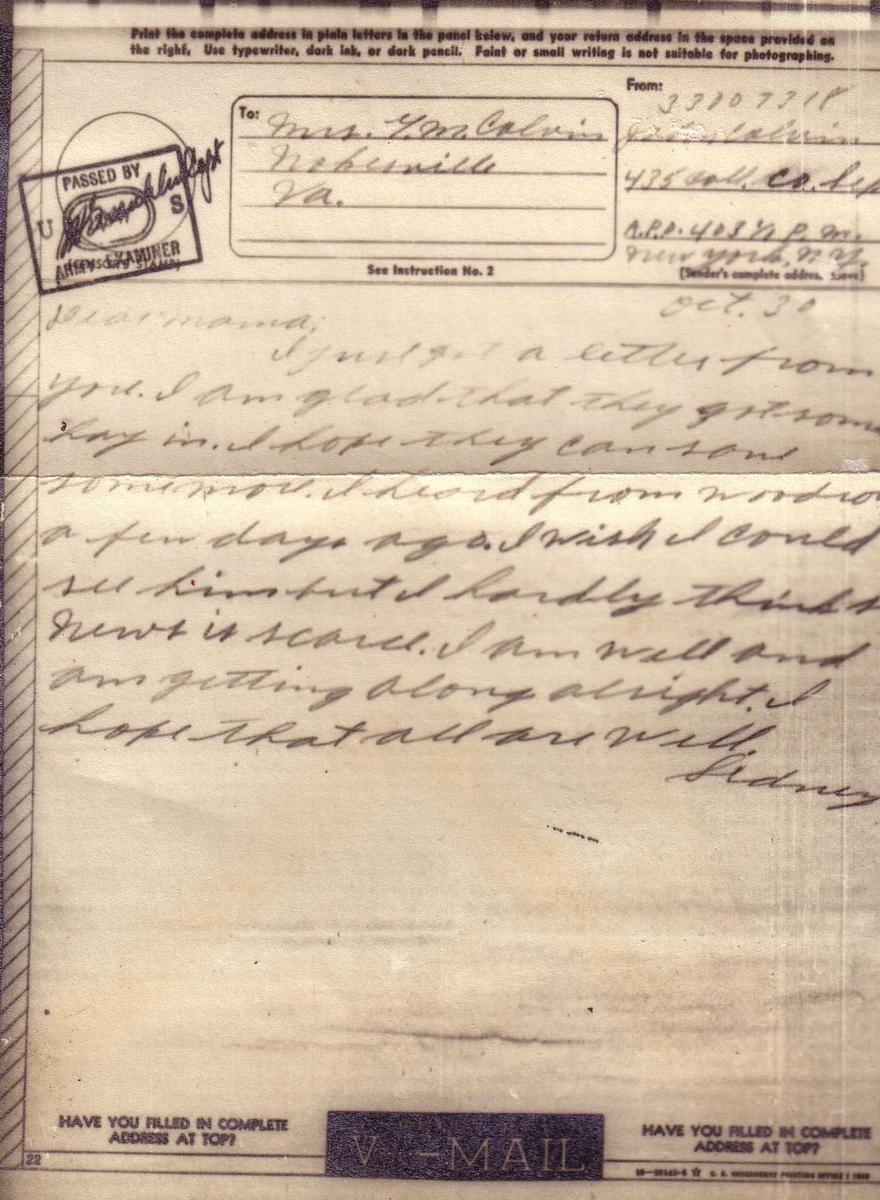 Print the complete address in plain letters in the panel below, and your return address in the space provided on
the right. Use typewriter, dark ink, or dark pencil. Faint or small writing is not suitable for photographing.
From:
33007318
To:
Mrs. Y. M. Colvin
Colvin
Nokesville
435 Coll. Co. Sep
Va.
A.P.O. 403 % P. M.
New York, N.Y.
(Sender's complete address above)
PASSED BY
U S
ARMY EXAMINER
See Instruction No. 2
Oct. 30
Dear mama;
I just got a letter from
you. I am glad that they got some
hay in. I hope they can save
some more. I heard from woodrow
a few days ago. I wish I could
see him but I hardly think so
News is scarce. I am well and
am getting along alright. I
hope that all are well.
Sidney
HAVE YOU FILLED IN COMPLETE
ADDRESS AT TOP?
V-MAIL
HAVE YOU FILLED IN COMPLETE
ADDRESS AT TOP?
22